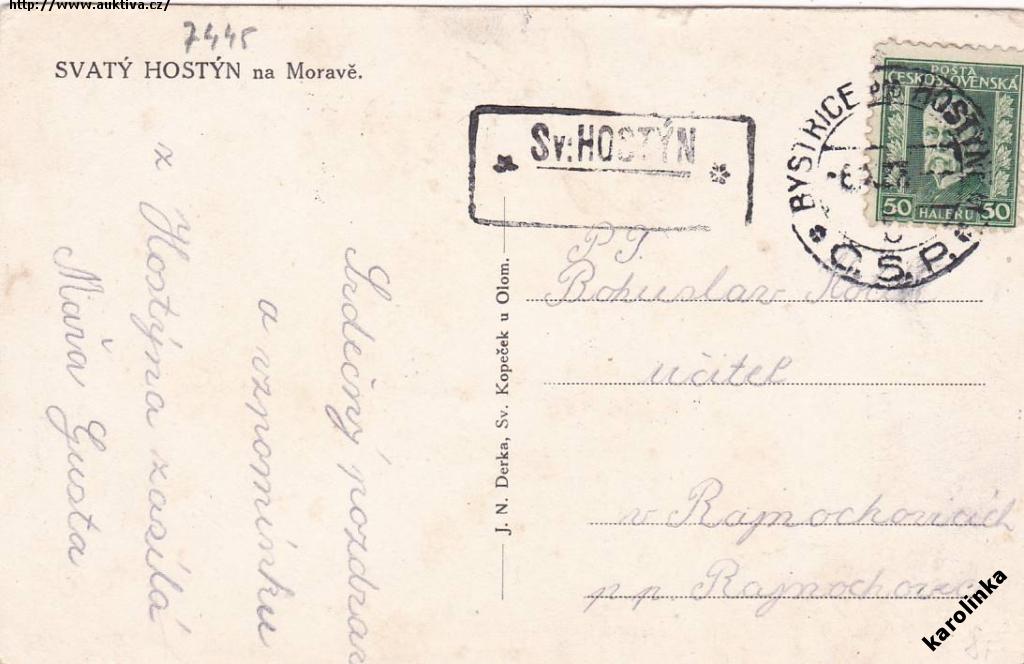 http://www.auktiva.cz/
7445
SVATÝ HOSTÝN na Moravě.
Sv: HOSTÝN
BYSTŘICE POD HOSTÝNEM
Č.S.P.
POŠTA
ČESKOSLOVENSKÁ
50 HALÉŘŮ 50
Srdečný pozdrav
a vzpomínku
z Hostýna zasílá
Máňa Gusta
J. N. Derka, Sv. Kopeček u Olom.
P.T.
Bohuslav
učitel
v Rajnochovicích
p.p. Rajnochovice
karolinka